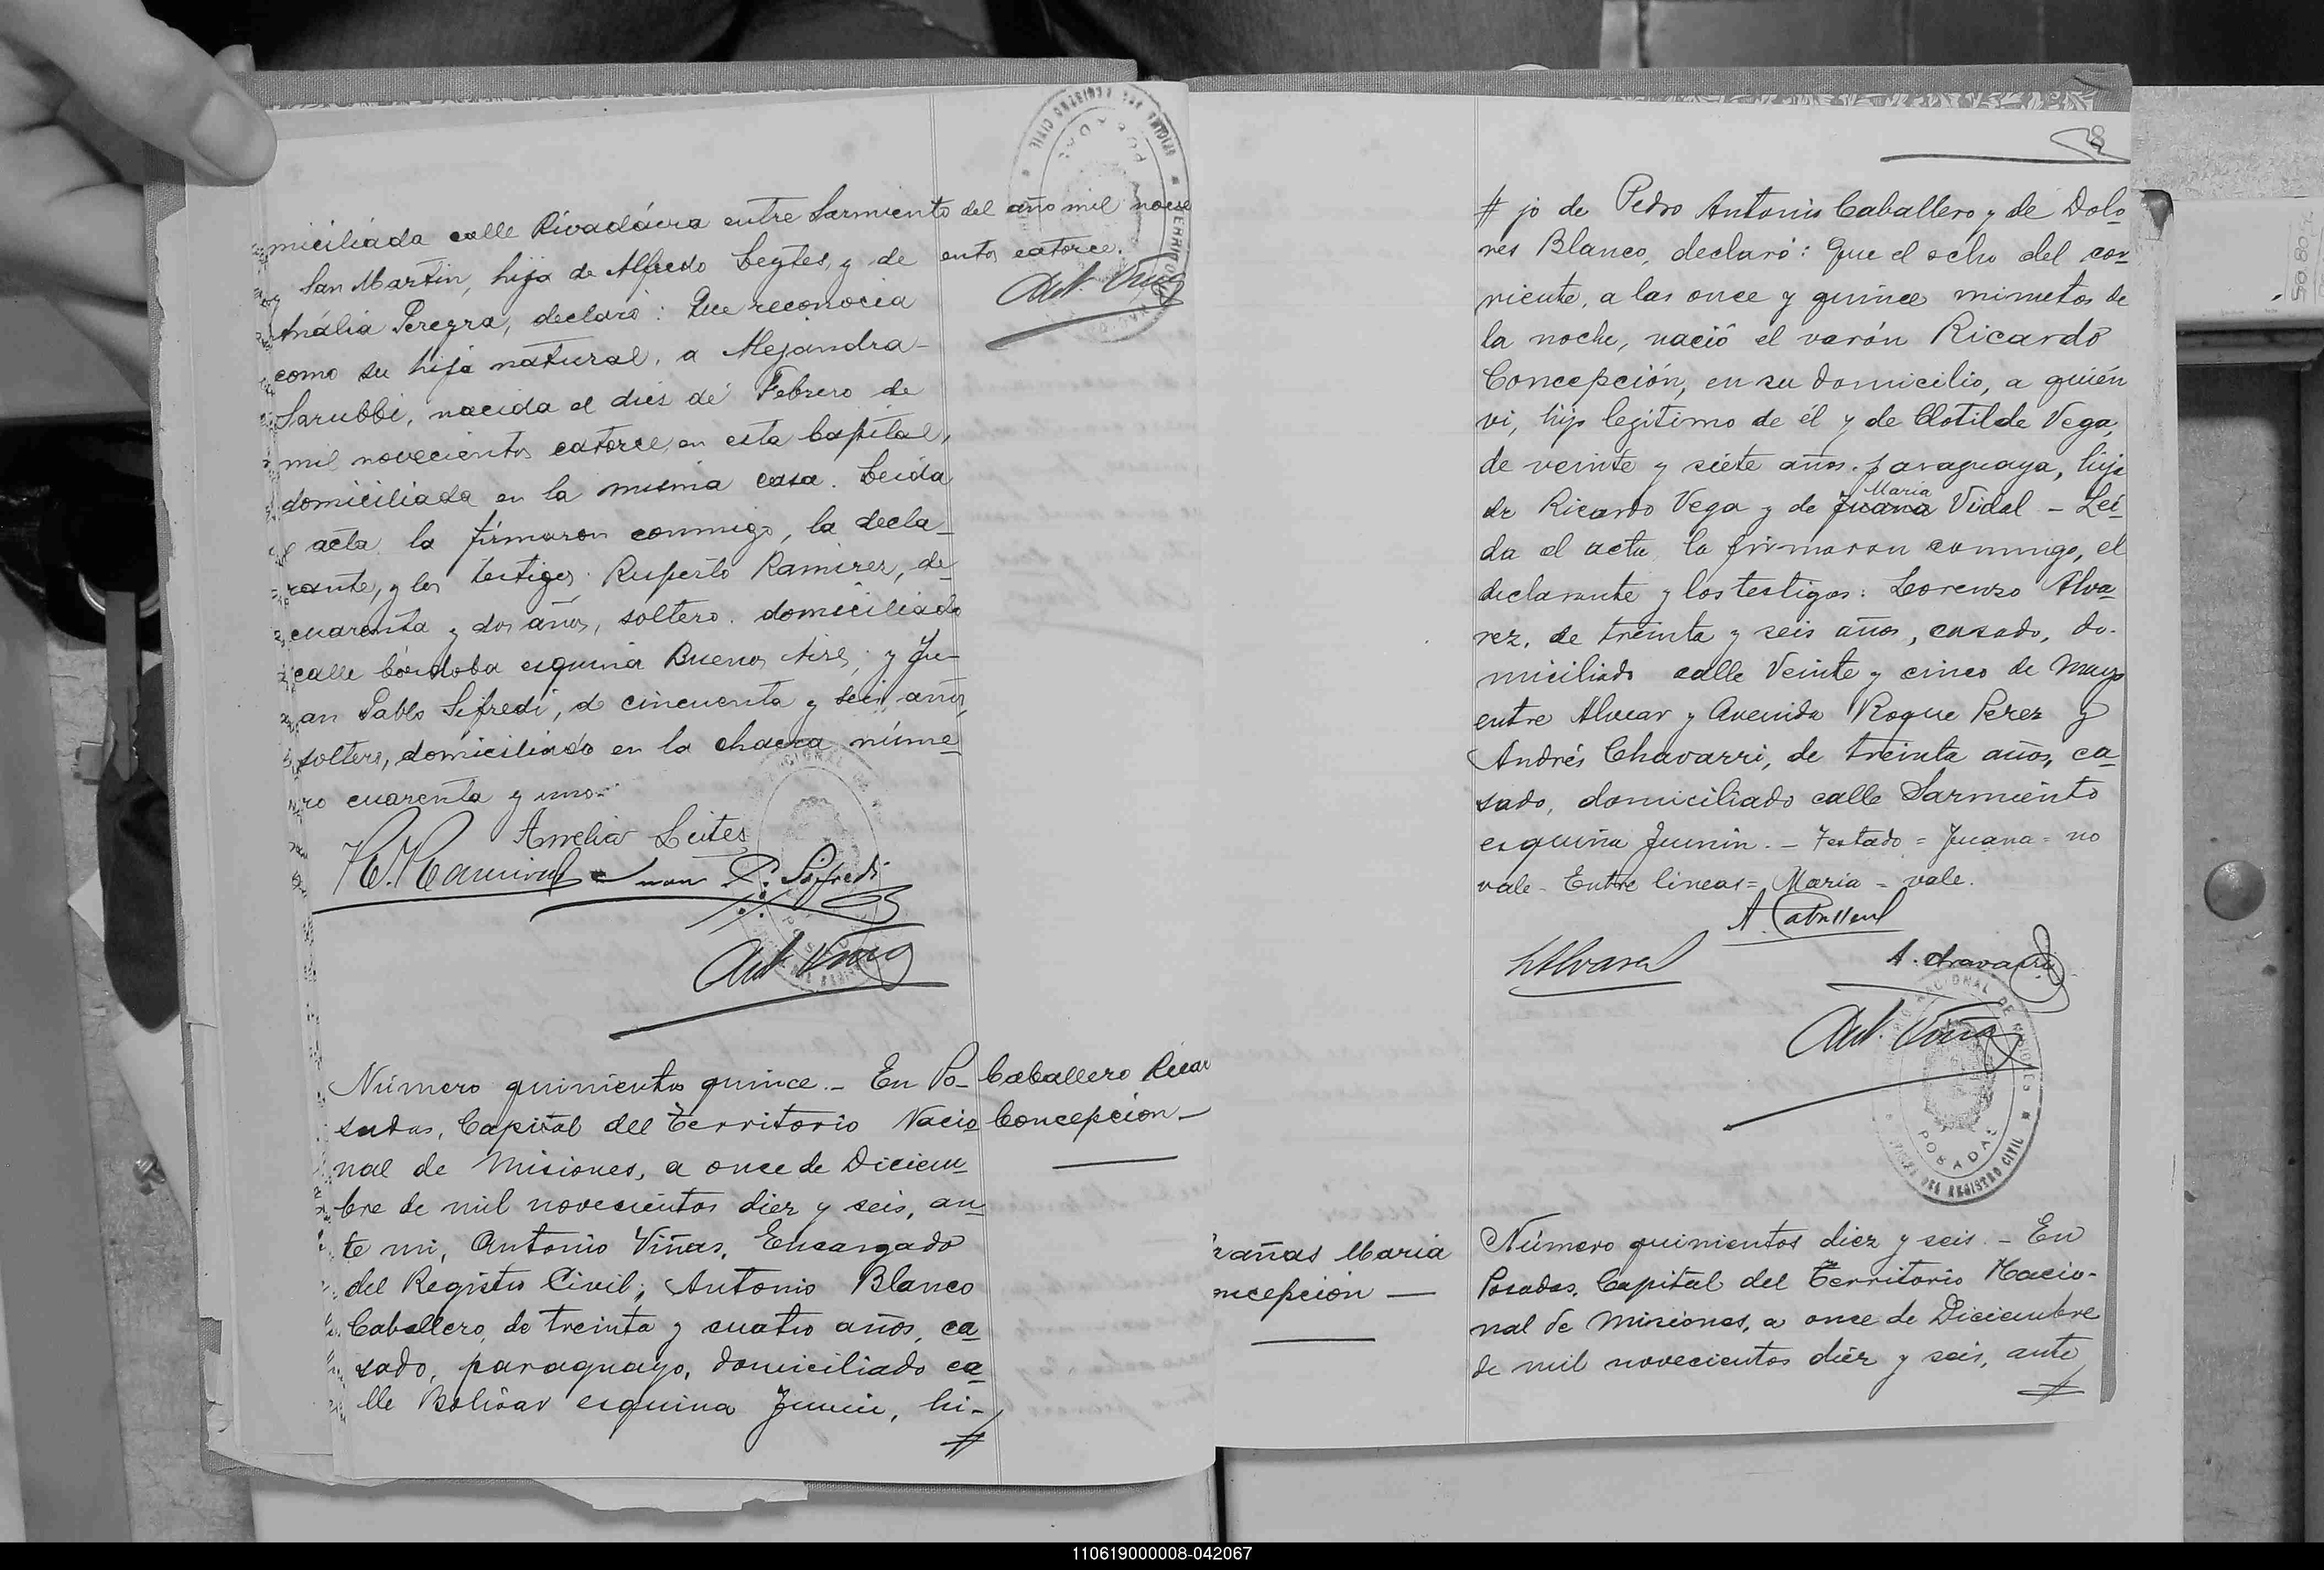 miciliada calle Rivadávia entre Sarmiento
y San Martin, hija de Alfredo Leytes, y de
Anália Pereyra, declaró: Que reconocia
como su hija natural, a Alejandra
Sarubbi, nacida el diés de Febrero de
mil novecientos catorce, en esta Capital,
domiciliada en la misma casa. Leida
el acta, la firmaron conmigo, la decla-
rante, y los testigos: Ruperto Ramirez, de
cuarenta y dos años, soltero, domiciliado
calle Córdoba esquina Buenos Aires, y Ju-
an Pablo Sifredi, de cincuenta y seis años,
soltero, domiciliado en la chacra núme-
ro cuarenta y uno.-
Amelia Leites
P. Sifredi
Ant. Viñas
del año mil nove
entos catorce.
Ant. Viñas
POSADAS
Número quinientos quince.- En Po-
sadas, Capital del Territorio Nacio-
nal de Misiones, a once de Diciem-
bre de mil novecientos diez y seis, an-
te mi, Antonio Viñas, Encargado
del Registro Civil; Antonio Blanco
Caballero, de treinta y cuatro años, ca-
sado, paraguayo, domiciliado ca-
lle Bolívar esquina Junin, hi-
#
Caballero Ricar
Concepción-
8
# jo de Pedro Antonio Caballero y de Dolo-
res Blanco, declaró: Que el ocho del cor-
riente, a las once y quince minutos de
la noche, nació el varón Ricardo
Concepción, en su domicilio, a quién
vi, hijo legítimo de él y de Clotilde Vega,
de veinte y siete años, paraguaya, hija
Maria
de Ricardo Vega y de Juana Vidal - Lei-
da el acta, la firmaron conmigo, el
declarante y los testigos: Lorenzo Alva-
rez, de treinta y seis años, casado, do-
miciliado calle Veinte y cinco de Mayo
entre Alvear y Avenida Roque Perez y
Andrés Chavarri, de treinta años, ca-
sado, domiciliado calle Sarmiento
esquina Junin. - Testado = Juana = no
vale - Entre lineas = Maria = vale.
LAlvarez
A. Chavarri
Ant. Viñas
POSADAS
OFICINA DEL REGISTRO CIVIL
rañas Maria
ncepción —
Número quinientos diez y seis. - En
Posadas, Capital del Territorio Nacio-
nal de Misiones, a once de Diciembre
de mil novecientos diez y seis, ante
#
110619000008-042067